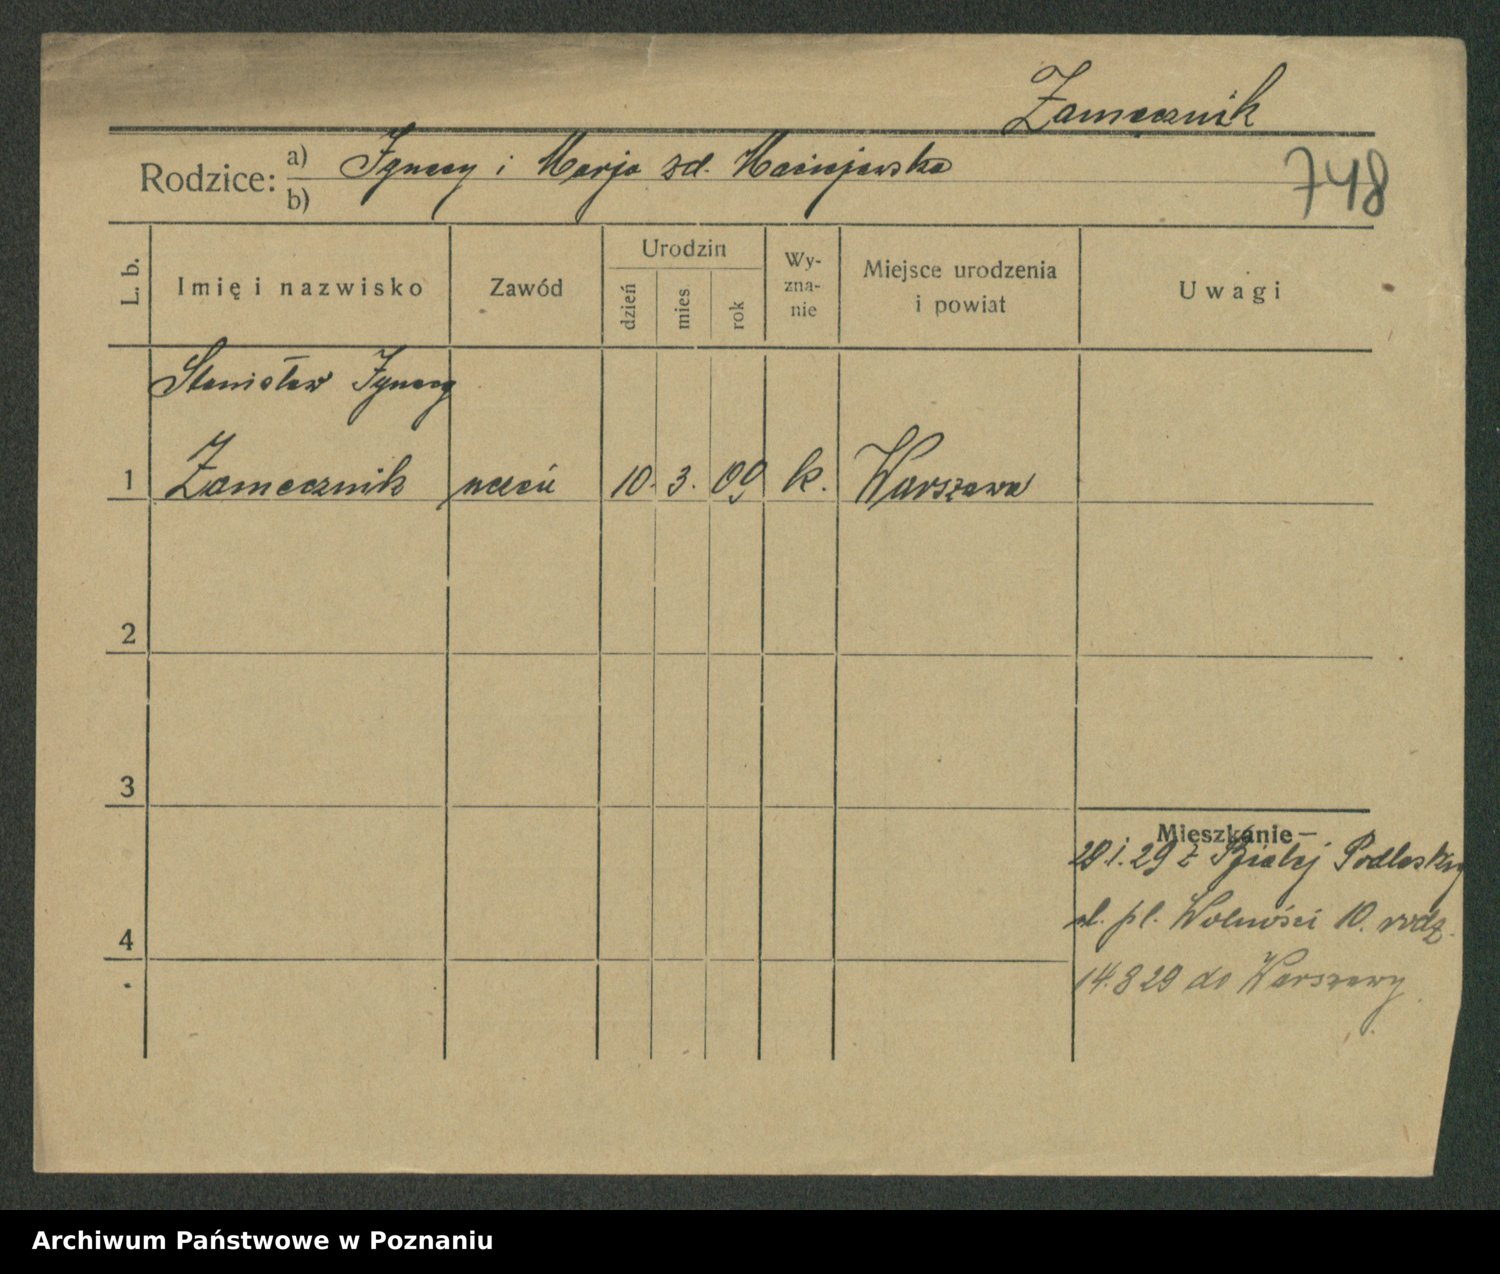 Zamecznik
Rodzice: a) Ignacy i Marja zd. Maciejewska
b)
748
L. b.
Imię i nazwisko
Zawód
Urodzin
dzień
mies
rok
Wy-
zna-
nie
Miejsce urodzenia
i powiat
Uwagi
Stanisław Ignacy
1 Zamecznik uczeń 10. 3. 09 k. Warszawa
2
3
Mieszkanie —
28.1.29 z Białej Podlaskiej
pl. Wolności 10. rodz.
4
14.8 29 do Warszawy
Archiwum Państwowe w Poznaniu